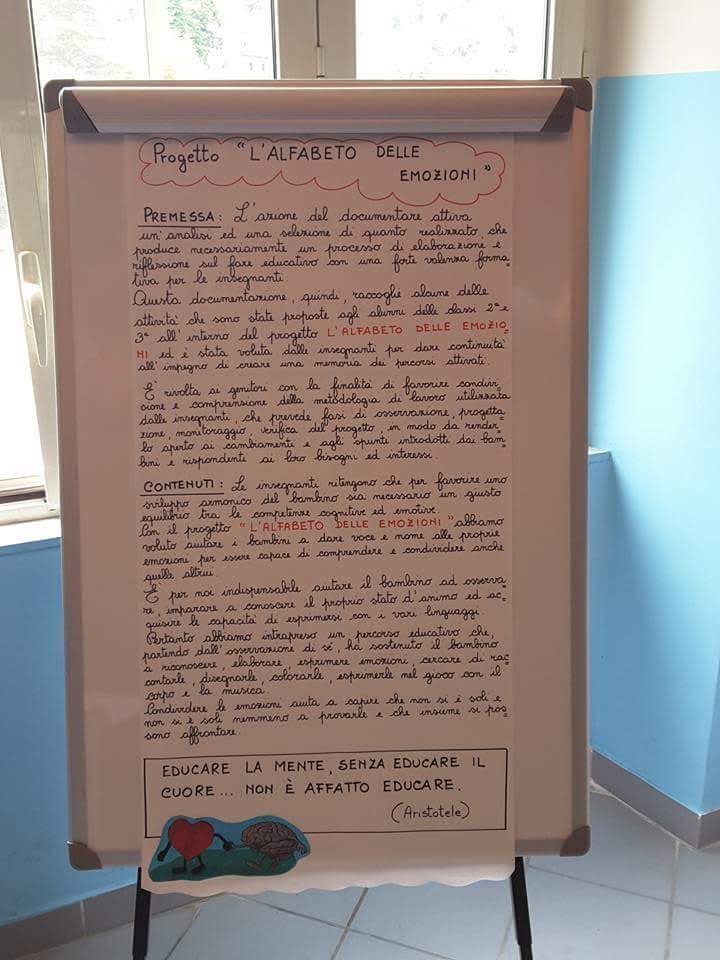 Progetto "L'ALFABETO DELLE
EMOZIONI"
PREMESSA: L'azione del documentare attiva
un'analisi ed una selezione di quanto realizzato, che
produce necessariamente un processo di elaborazione e
riflessione sul fare educativo con una forte valenza forma
tiva per le insegnanti.
Questa documentazione, quindi, raccoglie alcune delle
attività che sono state proposte agli alunni delle classi 2ª e
3ª all'interno del progetto L'ALFABETO DELLE EMOZIO
NI ed è stata voluta dalle insegnanti per dare continuità
all'impegno di creare una memoria dei percorsi attivati.
È rivolta ai genitori con la finalità di favorire condivi
sione e comprensione della metodologia di lavoro utilizzata
dalle insegnanti, che prevede fasi di osservazione, progetta
zione, monitoraggio, verifica del progetto, in modo da render
lo aperto ai cambiamenti e agli spunti introdotti dai bam
bini e rispondenti ai loro bisogni ed interessi.
CONTENUTI: Le insegnanti ritengono che per favorire uno
sviluppo armonico del bambino sia necessario un giusto
equilibrio tra le competenze cognitive ed emotive.
Con il progetto "L'ALFABETO DELLE EMOZIONI" abbiamo
voluto aiutare i bambini a dare voce e nome alle proprie
emozioni per essere capace di comprendere e condividere anche
quelle altrui.
E' per noi indispensabile aiutare il bambino ad osserva
re, imparare a conoscere il proprio stato d'animo ed ac
quisire le capacità di esprimersi con i vari linguaggi.
Pertanto abbiamo intrapreso un percorso educativo che,
partendo dall'osservazione di sé, ha sostenuto il bambino
a riconoscere, elaborare, esprimere emozioni, cercare di rac
contarle, disegnarle, colorarle, esprimerle nel gioco con il
corpo e la musica.
Condividere le emozioni aiuta a capire che non si è soli e
non si è soli nemmeno a provarle e che insieme si pos
sono affrontare.
EDUCARE LA MENTE, SENZA EDUCARE IL
CUORE... NON È AFFATTO EDUCARE.
(Aristotele)